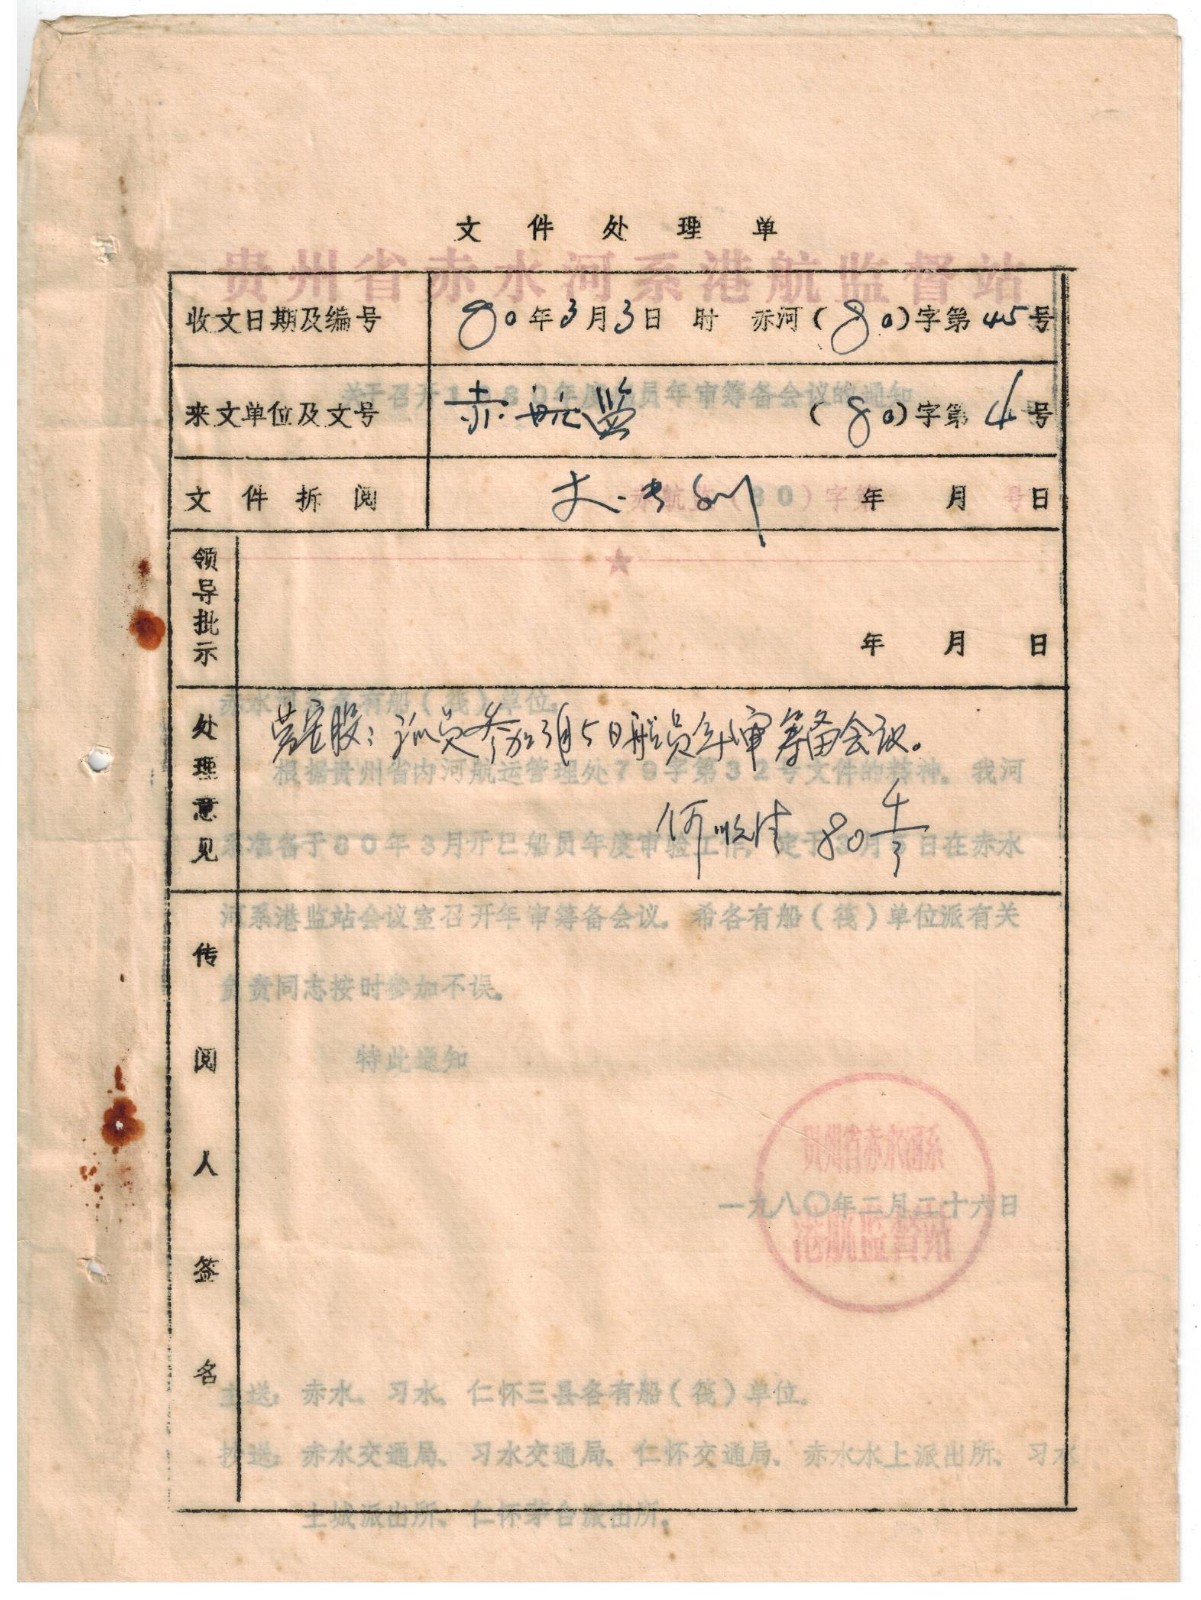 文件处理单
贵州省赤水河系港航监督站
收文日期及编号 80年3月3日 时 赤河(80)字第45号
关于召开1980年度船员年审筹备会议的通知
来文单位及文号 赤航监 (80)字第4号
文件拆阅 年 月 日
赤航监(80)字第 号
领导批示
年 月 日
赤水河系各有船(筏)单位。
处理意见
劳安股：派员参加3月5日船员年审筹备会议。
根据贵州省内河航运管理处79字第32号文件的精神。我河
80 4/3
系准备于80年3月开巳船员年度审验工作，定于3月5日在赤水
河系港监站会议室召开年审筹备会议。希各有船(筏)单位派有关
负责同志按时参加不误。
特此通知
传阅人签名
贵州省赤水河系
港航监督站
一九八〇年二月二十六日
主送：赤水、习水、仁怀三县各有船(筏)单位。
抄送：赤水交通局、习水交通局、仁怀交通局、赤水水上派出所、习水
土城派出所、仁怀茅台派出所。